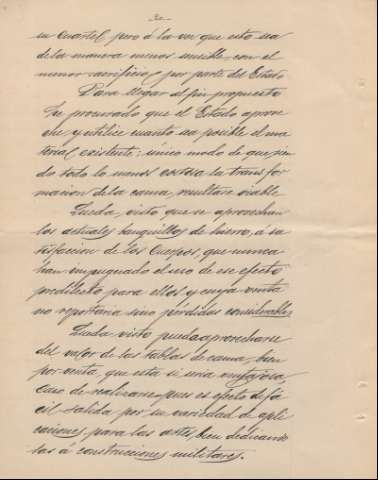 su Cuartel, pero á la vez que esto sea
de la manera menos sensible, con el
menor sacrificio por parte del Estado
Para llegar al fin propuesto
he procurado que el Estado aprove
che y utilice cuanto sea posible el ma
terial existente: único modo de que sien
do todo lo menos costosa la transfor
macion de la cama, resultare viable.
Queda visto que se aprovechan
los actuales banquillos de hierro, á sa
tisfaccion de los Cuerpos, que nunca
han impugnado el uso de ese efecto
predilecto para ellos y cuya venta
no reportaria sino pérdidas considerables
Queda visto puede aprovecharse
del valor de las tablas de cama, bien
por venta, que esta si seria ventajosa,
caso de realizarse, pues es efecto de fá
cil salida por su variedad de apli
caciones para las artes, bien dedicando
las á construcciones militares.